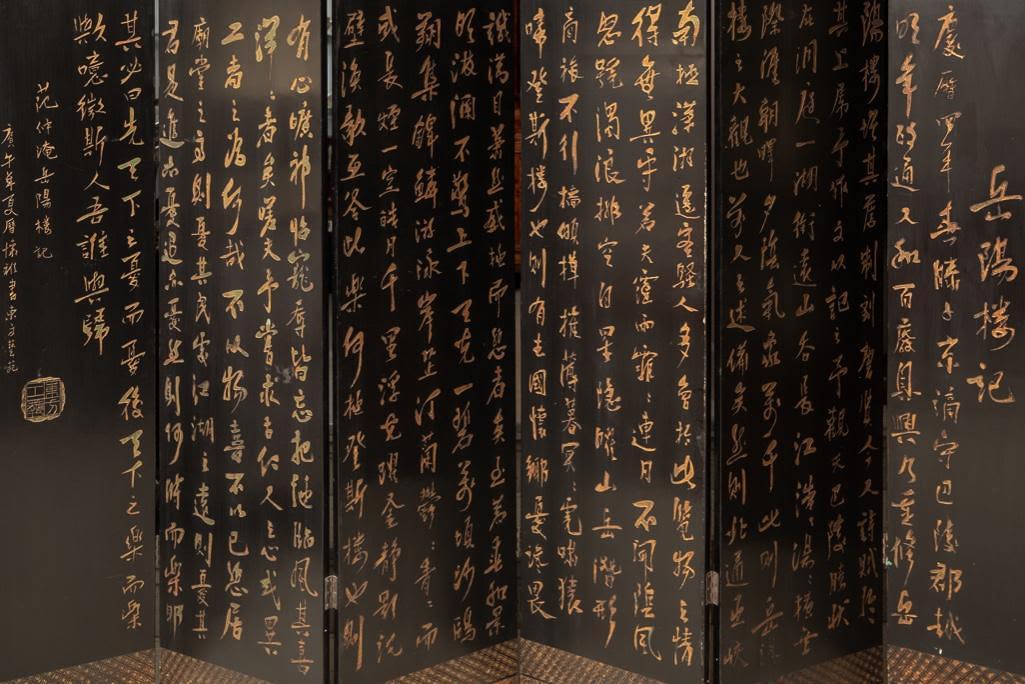 岳陽樓記
慶曆四年春滕子京謫守巴陵郡越
明年政通人和百廢具興乃重修岳
陽樓增其舊制刻唐賢今人之詩賦於
其上屬予作文以記之予觀夫巴陵勝狀
在洞庭一湖銜遠山吞長江浩浩湯湯橫無
際涯朝暉夕陰氣象萬千此則岳陽
樓之大觀也前人之述備矣然則北通巫峽
南極瀟湘遷客騷人多會於此覽物之情
得毋異乎若夫霪雨霏霏連月不開陰風
怒號濁浪排空日星隱曜山岳潛形
商旅不行檣傾楫摧薄暮冥冥虎嘯猿
啼登斯樓也則有去國懷鄉憂讒畏
譏滿目蕭然感極而悲者矣至若春和景
明波瀾不驚上下天光一碧萬頃沙鷗
翔集錦鱗游泳岸芷汀蘭鬱鬱青青而
或長煙一空皓月千里浮光躍金靜影沉
璧漁歌互答此樂何極登斯樓也則
有心曠神怡寵辱皆忘把酒臨風其喜
洋洋者矣嗟夫予嘗求古仁人之心或異
二者之為何哉不以物喜不以己悲居
廟堂之高則憂其民處江湖之遠則憂其
君是進亦憂退亦憂然則何時而樂耶
其必曰先天下之憂而憂後天下之樂而樂
歟噫微斯人吾誰與歸
范仲淹岳陽樓記
庚午年夏書東方藝苑